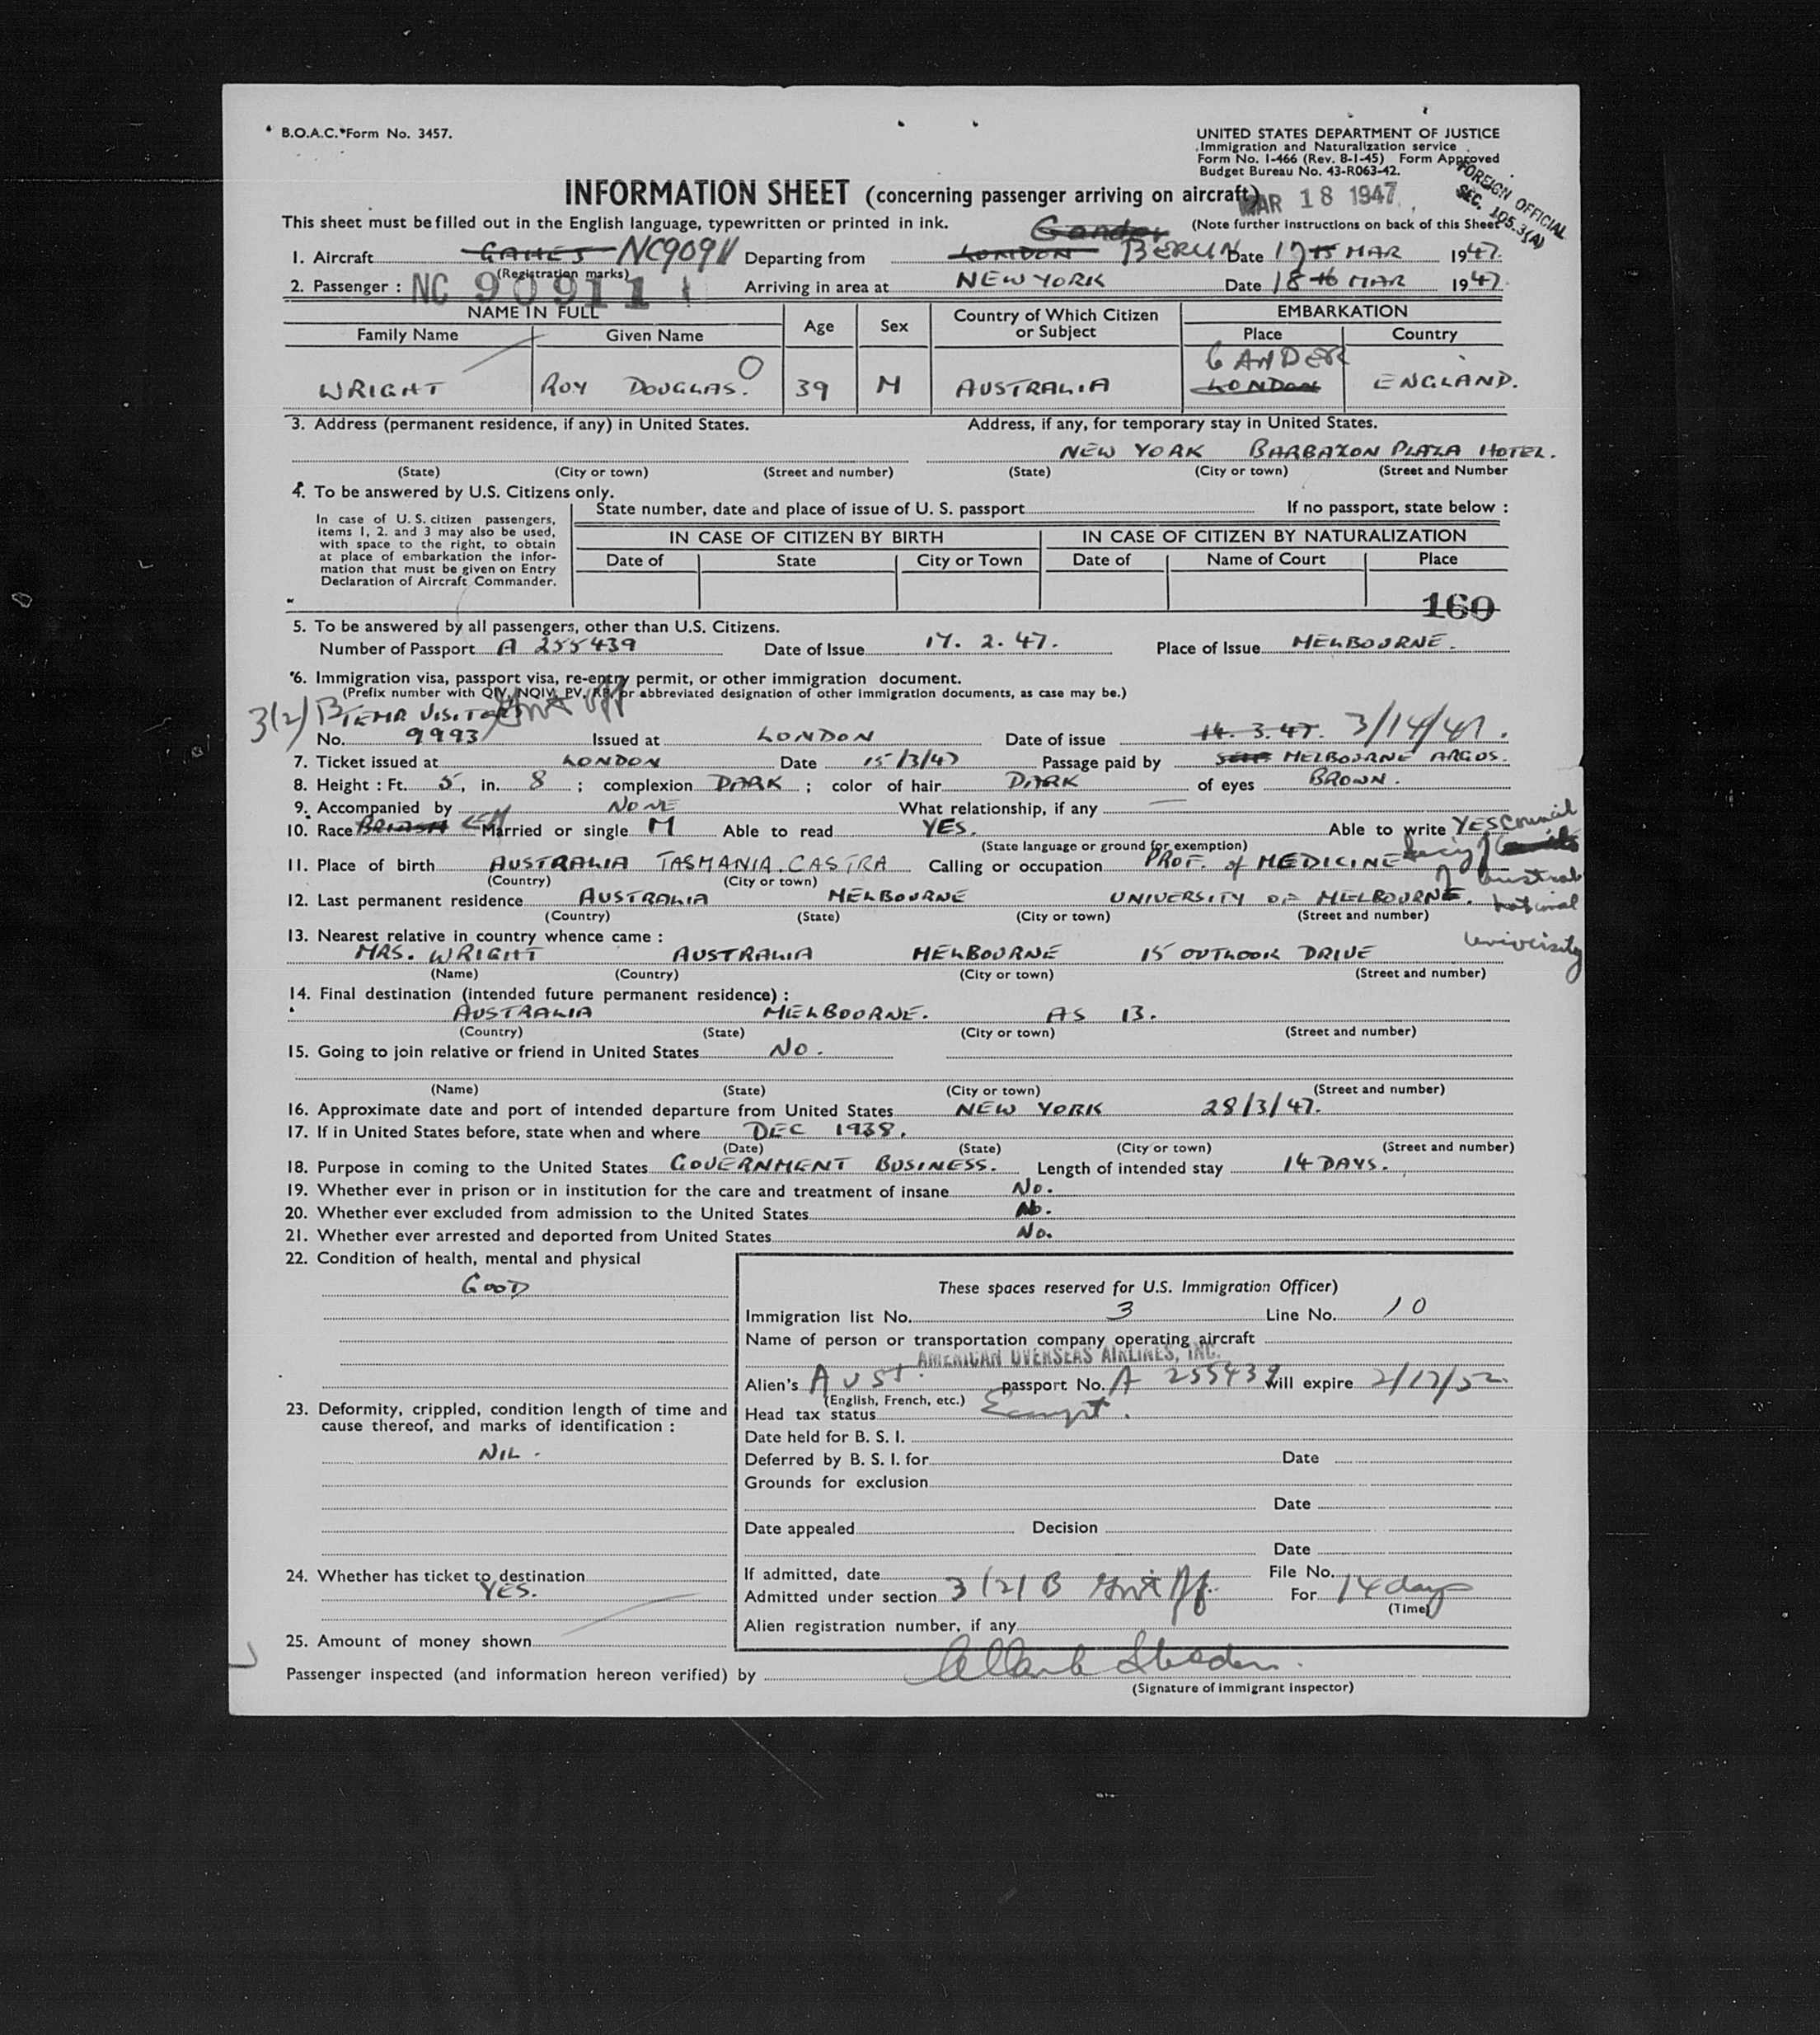 B.O.A.C. Form No. 3457.
UNITED STATES DEPARTMENT OF JUSTICE
Immigration and Naturalization service
Form No. I-466 (Rev. 8-1-45) Form Approved
Budget Bureau No. 43-R063-42.
FOREIGN OFFICIAL
SEC. 105.3(A)
INFORMATION SHEET (concerning passenger arriving on aircraft)
MAR 18 1947
This sheet must be filled out in the English language, typewritten or printed in ink.
(Note further instructions on back of this Sheet
Gander
1. Aircraft NC90911 Departing from LONDON BERLIN Date 17 15 MAR 1947.
(Registration marks)
2. Passenger : NC 90911 Arriving in area at NEW YORK Date 18 16 MAR 1947.
NAME IN FULL
Family Name Given Name
Age Sex
Country of Which Citizen or Subject
EMBARKATION
Place Country
GANDER
WRIGHT ROY DOUGLAS. O 39 M AUSTRALIA LONDON ENGLAND.
3. Address (permanent residence, if any) in United States. Address, if any, for temporary stay in United States.
NEW YORK BARBAZON PLAZA HOTEL.
(State) (City or town) (Street and number) (State) (City or town) (Street and Number
4. To be answered by U.S. Citizens only.
In case of U.S. citizen passengers, items 1, 2. and 3 may also be used, with space to the right, to obtain at place of embarkation the information that must be given on Entry Declaration of Aircraft Commander.
State number, date and place of issue of U. S. passport If no passport, state below :
IN CASE OF CITIZEN BY BIRTH IN CASE OF CITIZEN BY NATURALIZATION
Date of State City or Town Date of Name of Court Place
160
5. To be answered by all passengers, other than U.S. Citizens.
Number of Passport A 255439 Date of Issue 17. 2. 47. Place of Issue MELBOURNE.
6. Immigration visa, passport visa, re-entry permit, or other immigration document.
(Prefix number with QIV, NQIV, PV, RP, or abbreviated designation of other immigration documents, as case may be.)
3(2) B TEMP VISITOR Gov't Off
No. 9993 Issued at LONDON Date of issue 14. 3. 47. 3/14/47.
7. Ticket issued at LONDON Date 15/3/47 Passage paid by SELF MELBOURNE ARGOS.
8. Height : Ft. 5, in. 8 ; complexion DARK ; color of hair DARK of eyes BROWN.
9. Accompanied by NONE What relationship, if any —
10. Race BRITISH Married or single M Able to read YES. Able to write YES
(State language or ground for exemption)
Council
11. Place of birth AUSTRALIA TASMANIA. CASTRA Calling or occupation PROF. of MEDICINE
(Country) (City or town)
of Austral
National
University
12. Last permanent residence AUSTRALIA MELBOURNE UNIVERSITY OF MELBOURNE.
(Country) (State) (City or town) (Street and number)
13. Nearest relative in country whence came :
MRS. WRIGHT AUSTRALIA MELBOURNE 15 OUTLOOK DRIVE
(Name) (Country) (City or town) (Street and number)
14. Final destination (intended future permanent residence) :
AUSTRALIA MELBOURNE. AS 13.
(Country) (State) (City or town) (Street and number)
15. Going to join relative or friend in United States No.
(Name) (State) (City or town) (Street and number)
16. Approximate date and port of intended departure from United States NEW YORK 28/3/47.
17. If in United States before, state when and where DEC 1938.
(Date) (State) (City or town) (Street and number)
18. Purpose in coming to the United States GOVERNMENT BUSINESS. Length of intended stay 14 DAYS.
19. Whether ever in prison or in institution for the care and treatment of insane No.
20. Whether ever excluded from admission to the United States No.
21. Whether ever arrested and deported from United States No.
22. Condition of health, mental and physical
GOOD
23. Deformity, crippled, condition length of time and cause thereof, and marks of identification :
NIL.
24. Whether has ticket to destination
YES.
25. Amount of money shown
These spaces reserved for U.S. Immigration Officer)
Immigration list No. 3 Line No. 10
Name of person or transportation company operating aircraft
AMERICAN OVERSEAS AIRLINES, INC.
Alien's Aust. passport No. A 255439 will expire 2/17/52.
(English, French, etc.)
Head tax status Exempt.
Date held for B. S. I.
Deferred by B. S. I. for Date
Grounds for exclusion
Date
Date appealed Decision
Date
If admitted, date File No.
Admitted under section 3(2)B Gov't Off. For 14 days
(Time)
Alien registration number, if any
Passenger inspected (and information hereon verified) by
(Signature of immigrant inspector)